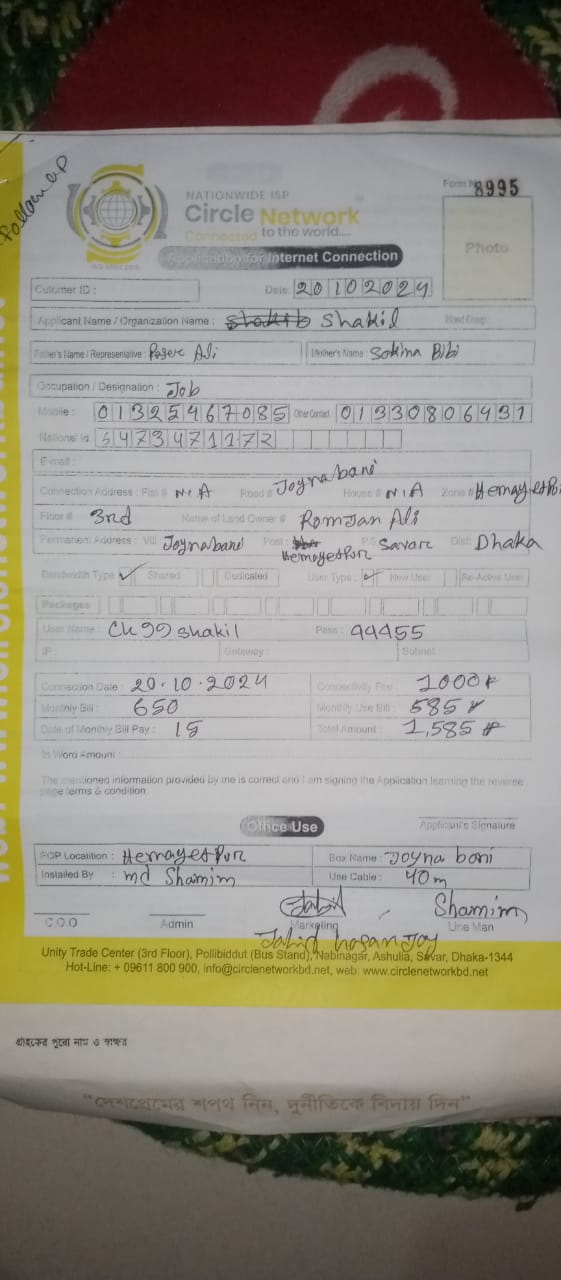 Follow up
Form No 8995
NATIONWIDE ISP
Circle Network
Connected to the world....
Application for Internet Connection
Photo
Cutomer ID :
Date: 20102024
Applicant Name / Organization Name : Shakil
Father's Name / Representative : Ali
Mother's Name : Sokina Bibi
Occupation / Designation : Job
Mobile : 01325467085 Other Contact 01330806431
National Id 6473471172
E-mail :
Connection Address : Flat # N/A Road # Joynabani House # N/A Zone #
Floor # 3rd Name of Land Owner # Romjan Ali
Permanent Address : Vill Joynabani Post : Hemayetpur P.S Savar Dist: Dhaka
Bandwidth Type ✓ Shared Dedicated User Type : ✓ New User Re-Active User
Packages
User Name : Shakil Pass : 99455
IP : Gateway : Subnet
Connection Date : 20.10.2024 Connectivity Fee 1000
Monthly Bill : 650 Monthly Use Bill : 585
Date of Monthly Bill Pay : 15 Total Amount : 1,585
In Word Amount :
The mentioned information provided by me is correct and I am signing the Application learning the reverse
page terms & condition.
Office Use
Applicant's Signature
POP Location : Hemayetpur Box Name : Joyna bani
Installed By : md Shamim Use Cable : 40m
Shamim
C O O Admin Marketing Line Man
Unity Trade Center (3rd Floor), Pollibiddut (Bus Stand), Nabinagar, Ashulia, Savar, Dhaka-1344
Hot-Line: + 09611 800 900, info@circlenetworkbd.net, web: www.circlenetworkbd.net
গ্রাহকের পুরো নাম ও স্বাক্ষর
"দেশপ্রেমের শপথ নিন, দুর্নীতিকে বিদায় দিন"